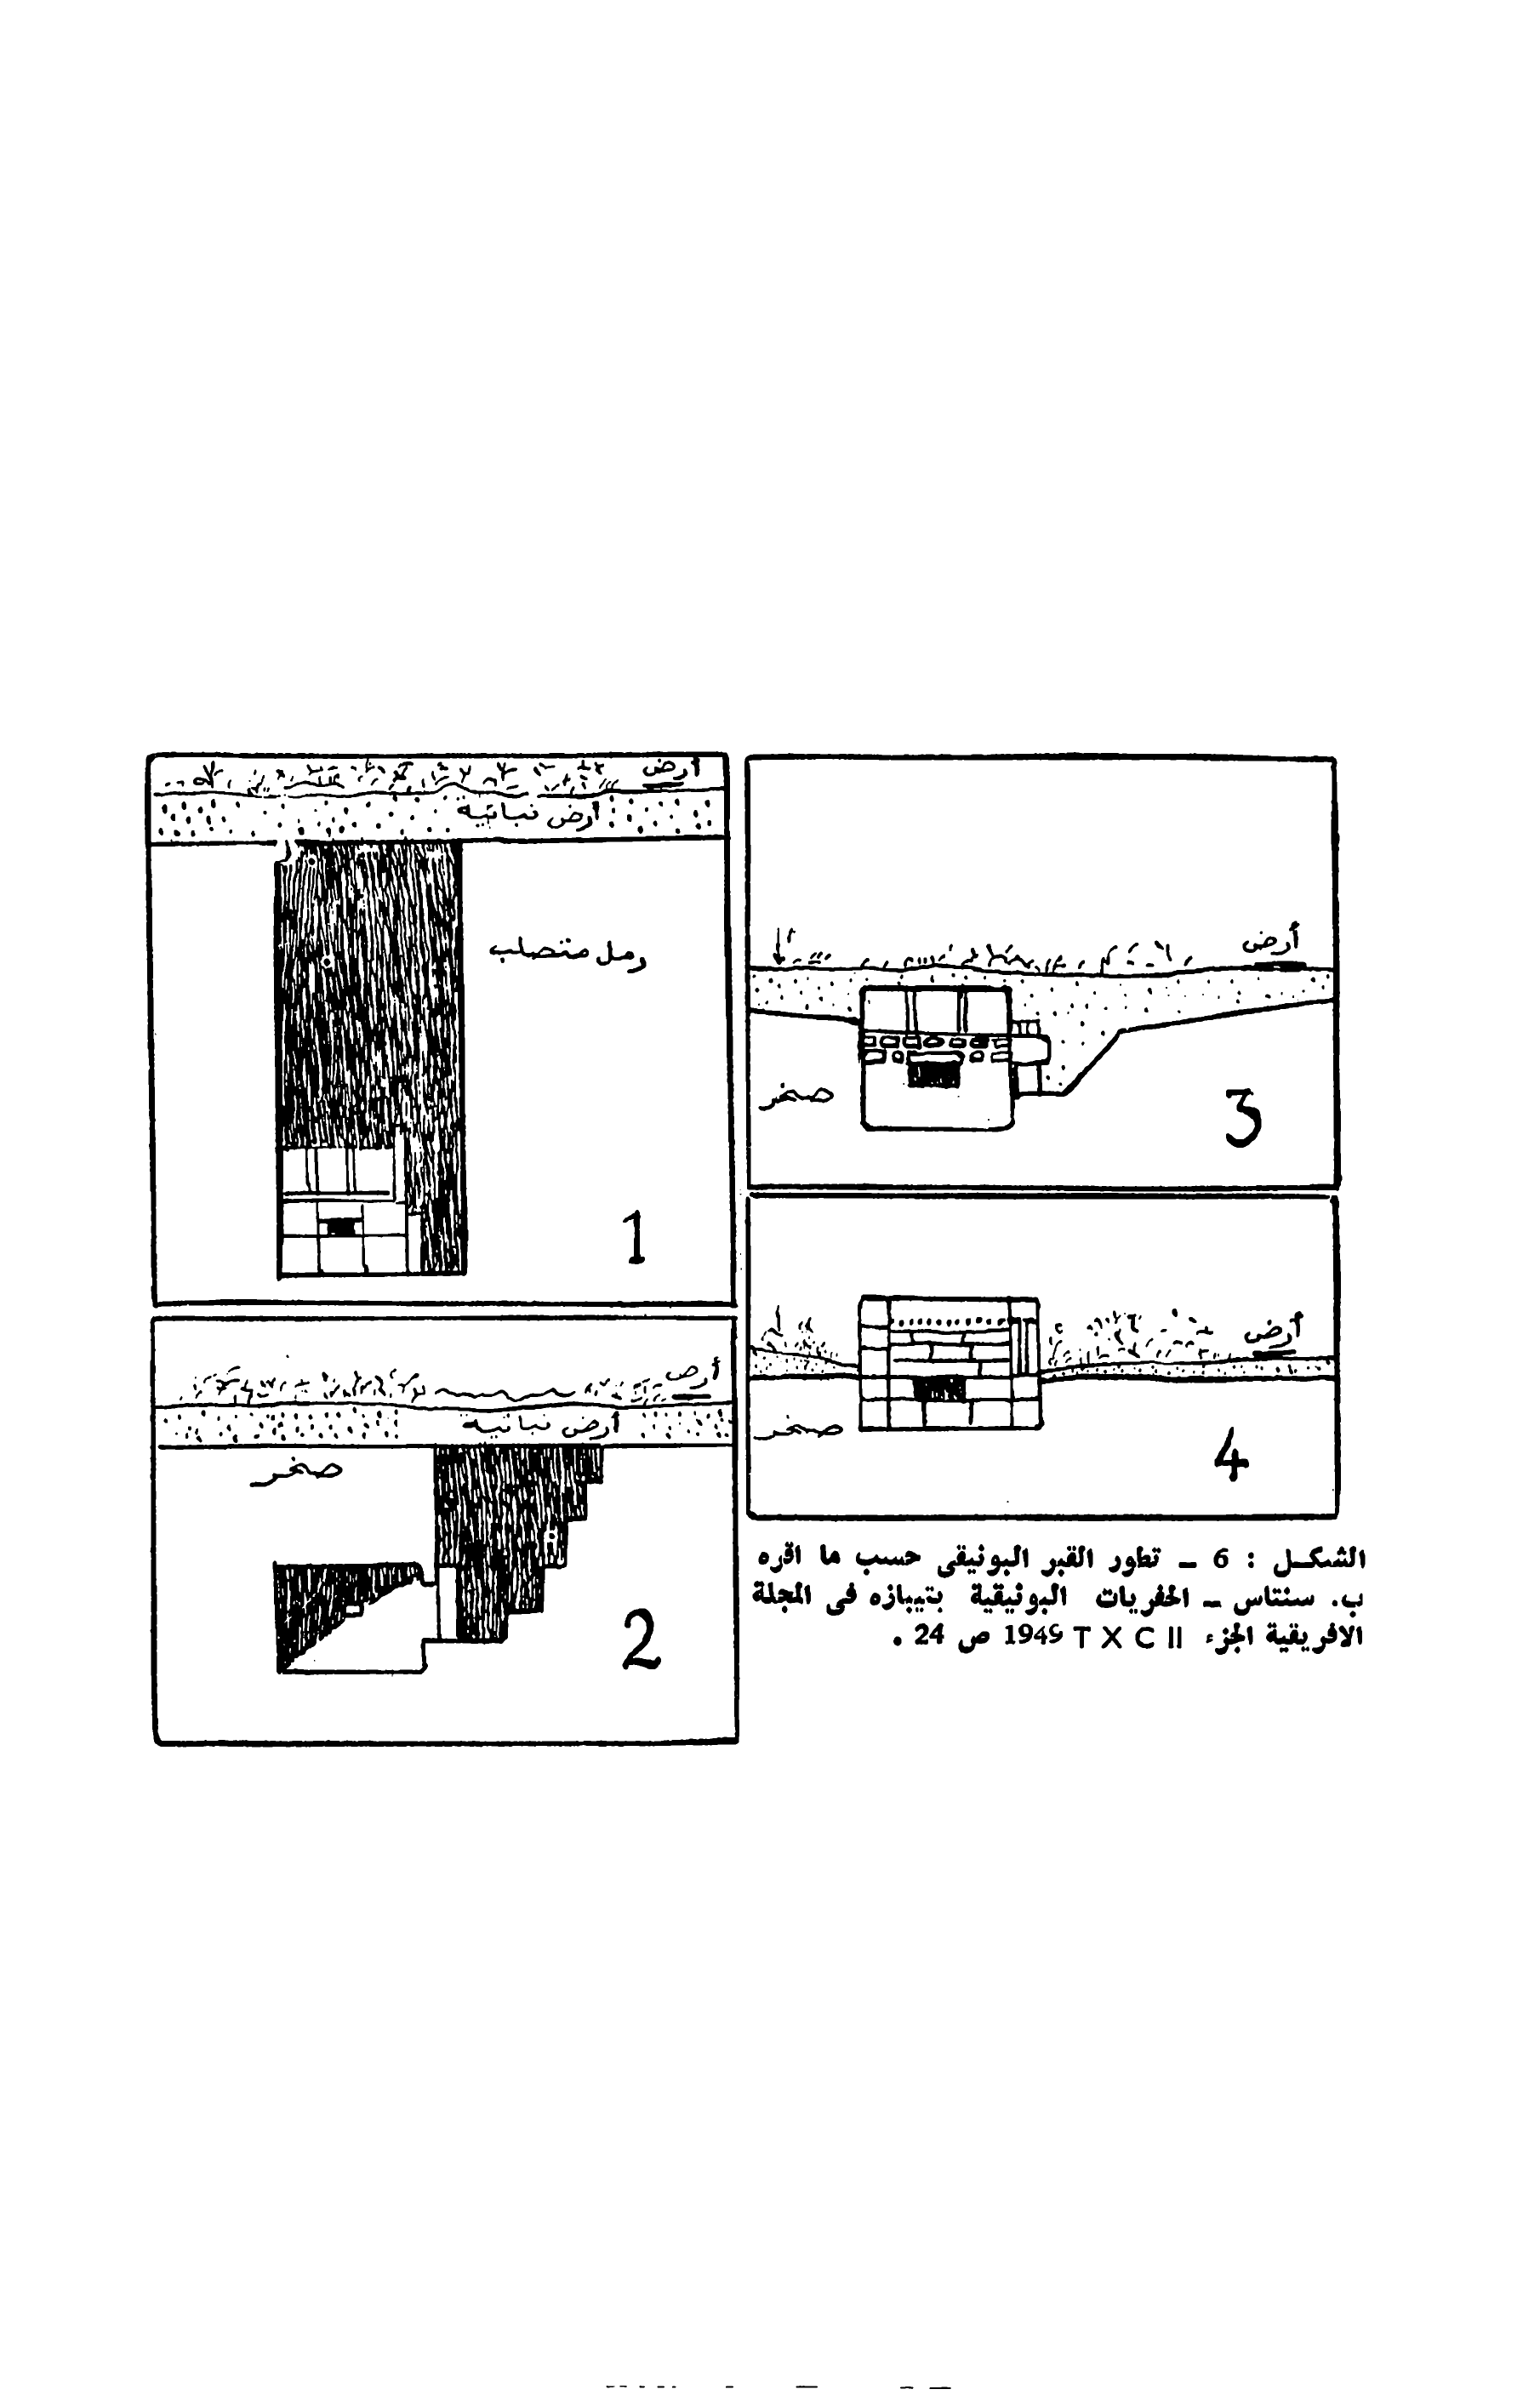 أرض
أرض نباتيه
رمل متصلب
1
أرض
أرض نباتيه
صخر
2
أرض
صخر
3
أرض
صخر
4
الشكـل : 6 ــ تطور القبر البونيقى حسب ما اقره
ب. سنتاس ــ الحفريات البونيقية بتيبازه فى المجلة
الافريقية الجزء T X C II 1949 ص 24 .